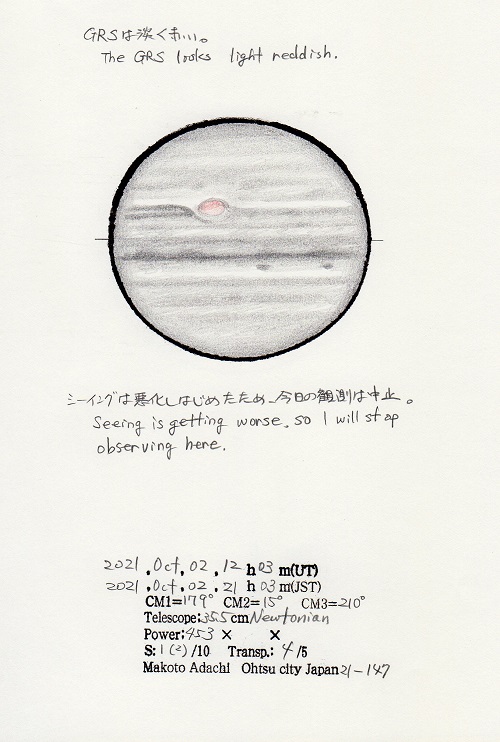 GRSは淡く赤い。
The GRS looks light reddish.
シーイングは悪化しはじめたため、今日の観測は中止。
Seeing is getting worse, so I will stop
observing here.
2021.Oct.02.12h03m(UT)
2021.Oct.02.21h03m(JST)
CM1=179° CM2=15° CM3=210°
Telescope;35.5cm Newtonian
Power;453× ×
S:1(2)/10 Transp.:4/5
Makoto Adachi Ohtsu city Japan 21-147